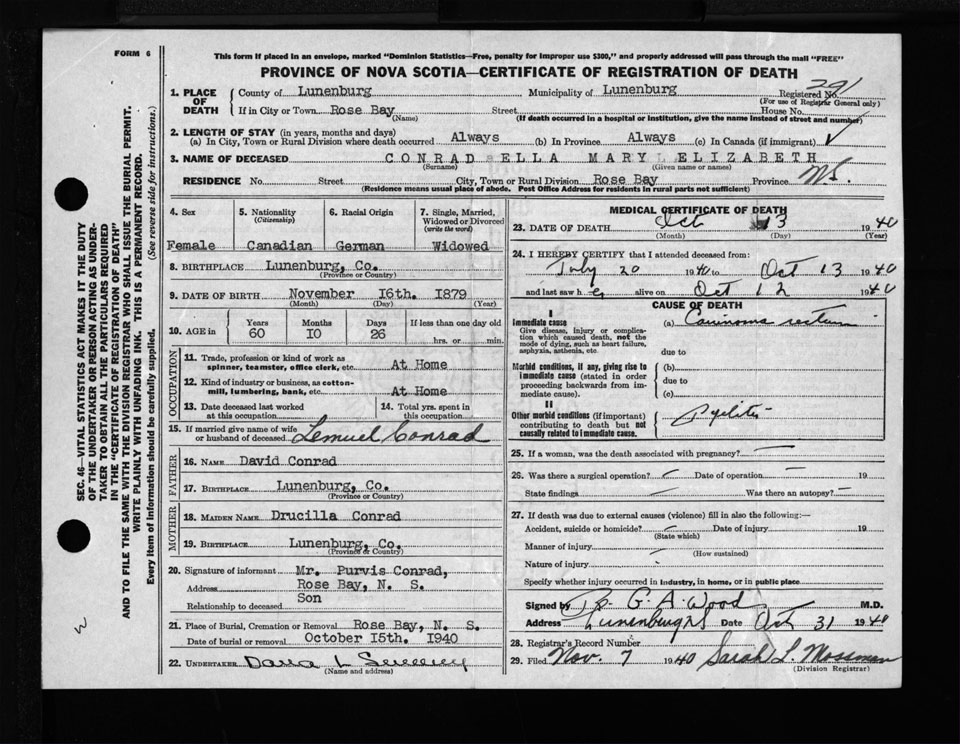 FORM 6
This form if placed in an envelope, marked "Dominion Statistics—Free, penalty for improper use $300," and properly addressed will pass through the mail "FREE"
PROVINCE OF NOVA SCOTIA—CERTIFICATE OF REGISTRATION OF DEATH
SEC. 46—VITAL STATISTICS ACT MAKES IT THE DUTY
OF THE UNDERTAKER OR PERSON ACTING AS UNDER-
TAKER TO OBTAIN ALL THE PARTICULARS REQUIRED
IN THE "CERTIFICATE OF REGISTRATION OF DEATH"
AND TO FILE THE SAME WITH THE DIVISION REGISTRAR WHO SHALL ISSUE THE BURIAL PERMIT.
WRITE PLAINLY WITH UNFADING INK. THIS IS A PERMANENT RECORD.
Every item of information should be carefully supplied. (See reverse side for instructions.)
1. PLACE OF DEATH County of Lunenburg Municipality of Lunenburg Registered No. 291
(For use of Registrar General only)
If in City or Town Rose Bay Street House No.
(Name) (If death occurred in a hospital or institution, give the name instead of street and number)
2. LENGTH OF STAY (in years, months and days)
(a) In City, Town or Rural Division where death occurred Always (b) In Province Always (c) In Canada (if immigrant)
3. NAME OF DECEASED CONRAD ELLA MARY ELIZABETH
(Surname) (Given name or names)
RESIDENCE No. Street City, Town or Rural Division Rose Bay Province N.S.
(Residence means usual place of abode. Post Office Address for residents in rural parts not sufficient)
4. Sex 5. Nationality (Citizenship) 6. Racial Origin 7. Single, Married, Widowed or Divorced (write the word)
Female Canadian German Widowed
8. BIRTHPLACE Lunenburg, Co.
(Province or Country)
9. DATE OF BIRTH November 16th. 1879
(Month) (Day) (Year)
10. AGE in Years Months Days If less than one day old
60 10 26 hrs. or min.
OCCUPATION
11. Trade, profession or kind of work as spinner, teamster, office clerk, etc. At Home
12. Kind of industry or business, as cotton-mill, lumbering, bank, etc. At Home
13. Date deceased last worked at this occupation 14. Total yrs. spent in this occupation
15. If married give name of wife or husband of deceased Lemuel Conrad
FATHER
16. NAME David Conrad
17. BIRTHPLACE Lunenburg, Co.
(Province or Country)
MOTHER
18. MAIDEN NAME Drucilla Conrad
19. BIRTHPLACE Lunenburg, Co.
(Province or Country)
20. Signature of informant Mr. Purvis Conrad,
Address Rose Bay, N. S.
Relationship to deceased Son
21. Place of Burial, Cremation or Removal Rose Bay, N. S.
Date of burial or removal October 15th. 1940
22. UNDERTAKER
(Name and address)
MEDICAL CERTIFICATE OF DEATH
23. DATE OF DEATH Oct 13 1940
(Month) (Day) (Year)
24. I HEREBY CERTIFY that I attended deceased from:
July 20 1940 to Oct 13 1940
and last saw her alive on Oct 12 1940
CAUSE OF DEATH
I
Immediate cause
Give disease, injury or complication which caused death, not the mode of dying, such as heart failure, asphyxia, asthenia, etc.
(a) Carcinoma rectum
due to
Morbid conditions, if any, giving rise to immediate cause (stated in order proceeding backwards from immediate cause).
(b)
due to
(c)
II
Other morbid conditions (if important) contributing to death but not causally related to immediate cause.
Pyelitis
25. If a woman, was the death associated with pregnancy?
26. Was there a surgical operation? Date of operation 19
State findings Was there an autopsy?
27. If death was due to external causes (violence) fill in also the following:—
Accident, suicide or homicide? Date of injury 19
(State which)
Manner of injury
(How sustained)
Nature of injury
Specify whether injury occurred in industry, in home, or in public place
Signed by Dr. G. A. Wood M.D.
Address Lunenburg NS Date Oct 31 1940
28. Registrar's Record Number
29. Filed Nov. 7 1940 Sarah L. Mossman
(Division Registrar)